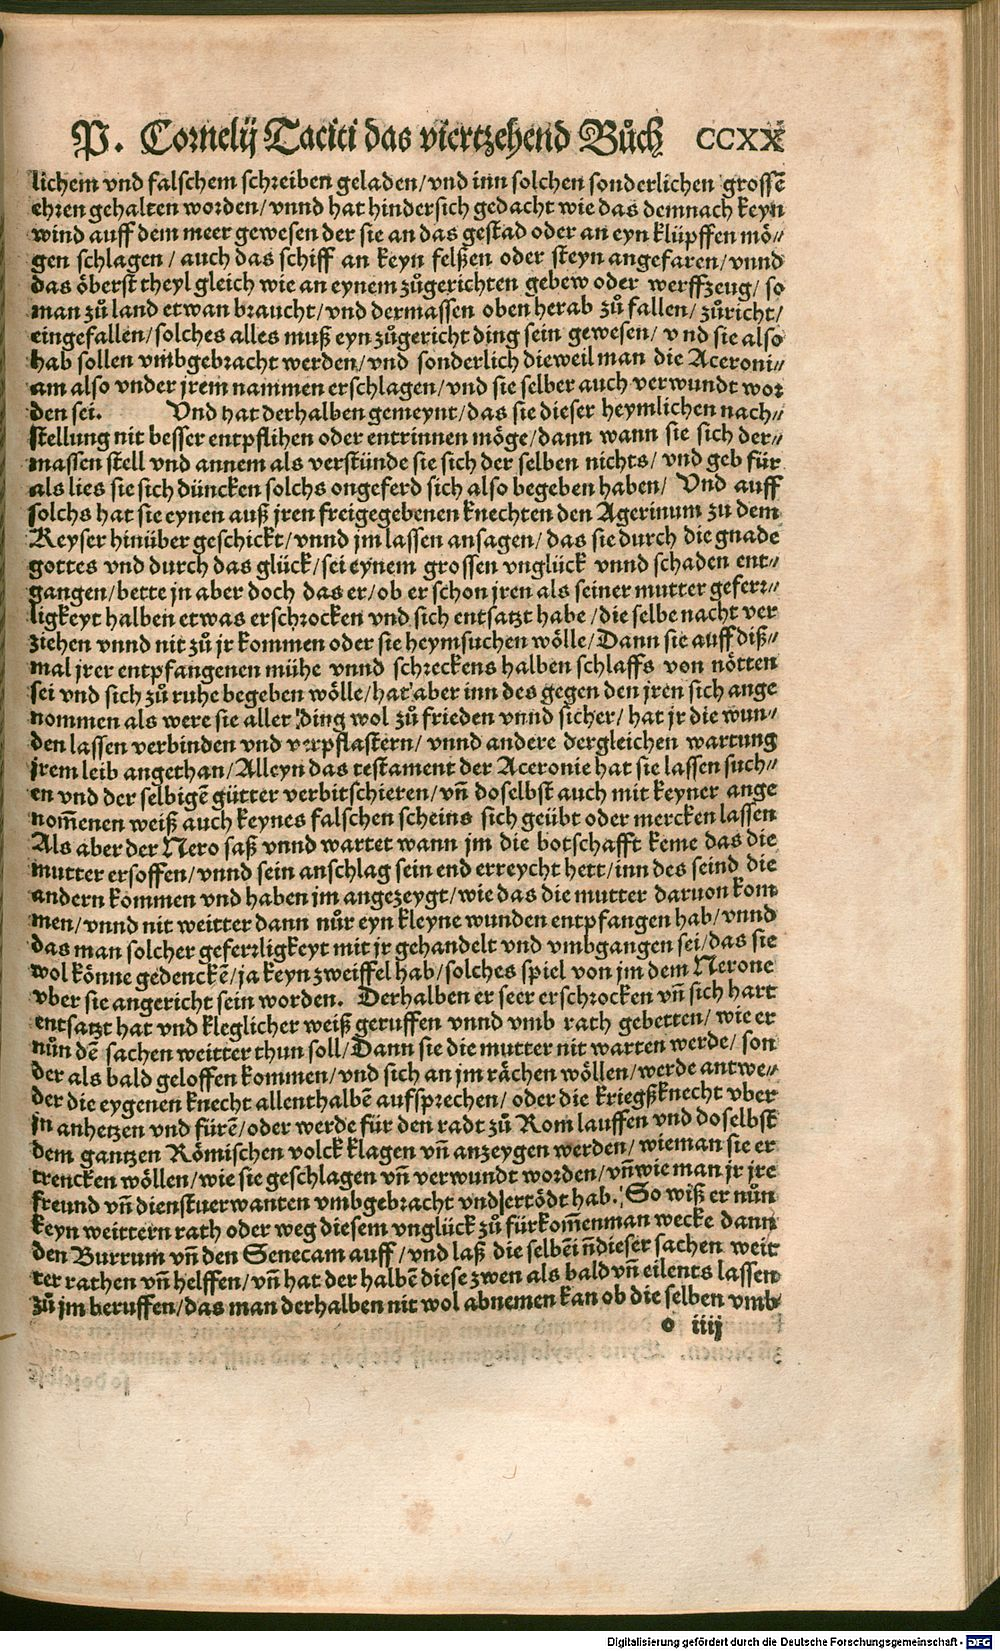 P. Cornelij Taciti das viertzehend Bůch CCXX
lichem vnd falschem schreiben geladen/vnd inn solchen sonderlichen grossē
ehren gehalten worden/vnnd hat hindersich gedacht wie das demnach keyn
wind auff dem meer gewesen der sie an das gestad oder an eyn klüpffen mö⸗
gen schlagen/ auch das schiff an keyn felßen oder steyn angefaren/vnnd
das öberst theyl gleich wie an eynem zůgerichten gebew oder werffzeug/ so
man zů land etwan braucht/vnd dermassen oben herab zů fallen/ zůricht/
eingefallen/solches alles muß eyn zůgericht ding sein gewesen/ vnd sie also
hab sollen vmbgebracht werden/vnd sonderlich dieweil man die Aceroni⸗
am also vnder jrem nammen erschlagen/vnd sie selber auch verwundt wor
den sei. Vnd hat derhalben gemeynt/das sie dieser heymlichen nach⸗
stellung nit besser entpflihen oder entrinnen möge/dann wann sie sich der⸗
massen stell vnd annem als verstünde sie sich der selben nichts/ vnd geb für
als lies sie sich düncken solchs ongeferd sich also begeben haben/ Vnd auff
solchs hat sie eynen auß jren freigegebenen knechten den Agerinum zu dem
Keyser hinüber geschickt/vnnd jm lassen ansagen/das sie durch die gnade
gottes vnd durch das glück/sei eynem grossen vnglück vnnd schaden ent⸗
gangen/bette jn aber doch das er/ob er schon jren als seiner mutter geferr⸗
ligkeyt halben etwas erschrocken vnd sich entsatzt habe/die selbe nacht ver
ziehen vnnd nit zů jr kommen oder sie heymsuchen wölle/Dann sie auff diß⸗
mal jrer entpfangenen mühe vnnd schreckens halben schlaffs von nötten
sei vnd sich zů ruhe begeben wölle/hat aber inn des gegen den jren sich ange
nommen als were sie aller ding wol zů frieden vnnd sicher/ hat jr die wun⸗
den lassen verbinden vnd verpflastern/ vnnd andere dergleichen wartung
jrem leib angethan/Alleyn das testament der Aceronie hat sie lassen such⸗
en vnd der selbigē gütter verbitschieren/vñ doselbst auch mit keyner ange
nom̄enen weiß auch keynes falschen scheins sich geübt oder mercken lassen
Als aber der Nero saß vnnd wartet wann jm die botschafft keme das die
mutter ersoffen/vnnd sein anschlag sein end erreycht hett/inn des seind die
andern kommen vnd haben jm angezeygt/wie das die mutter daruon kom
men/vnnd nit weitter dann nůr eyn kleyne wunden entpfangen hab/vnnd
das man solcher geferrligkeyt mit jr gehandelt vnd vmbgangen sei/das sie
wol könne gedenckē/ja keyn zweiffel hab/solches spiel von jm dem Nerone
vber sie angericht sein worden. Derhalben er seer erschrocken vñ sich hart
entsatzt hat vnd kleglicher weiß geruffen vnnd vmb rath gebetten/ wie er
nůn dē sachen weitter thun soll/Dann sie die mutter nit warten werde/ son
der als bald geloffen kommen/vnd sich an jm rächen wöllen/werde antwe⸗
der die eygenen knecht allenthalbē aufsprechen/ oder die kriegßknecht vber
jn anhetzen vnd fürē/oder werde für den radt zů Rom lauffen vnd doselbst
dem gantzen Römischen volck klagen vñ anzeygen werden/wieman sie er
trencken wöllen/wie sie geschlagen vñ verwundt worden/vñwie man jr jre
freund vñ dienstuerwanten vmbgebracht vnd ertödt hab. So wiß er nůn
keyn weittern rath oder weg diesem vnglück zů fürkom̄enman wecke dann
den Burrum vñ den Senecam auff/vnd laß die selbēi ñdieser sachen weit
ter rathen vñ helffen/vñ hat der halbē diese zwen als bald vñ eilents lassen
zů jm beruffen/das man derhalben nit wol abnemen kan ob die selben vmb
o iiij
Digitalisierung gefördert durch die Deutsche Forschungsgemeinschaft - DFG